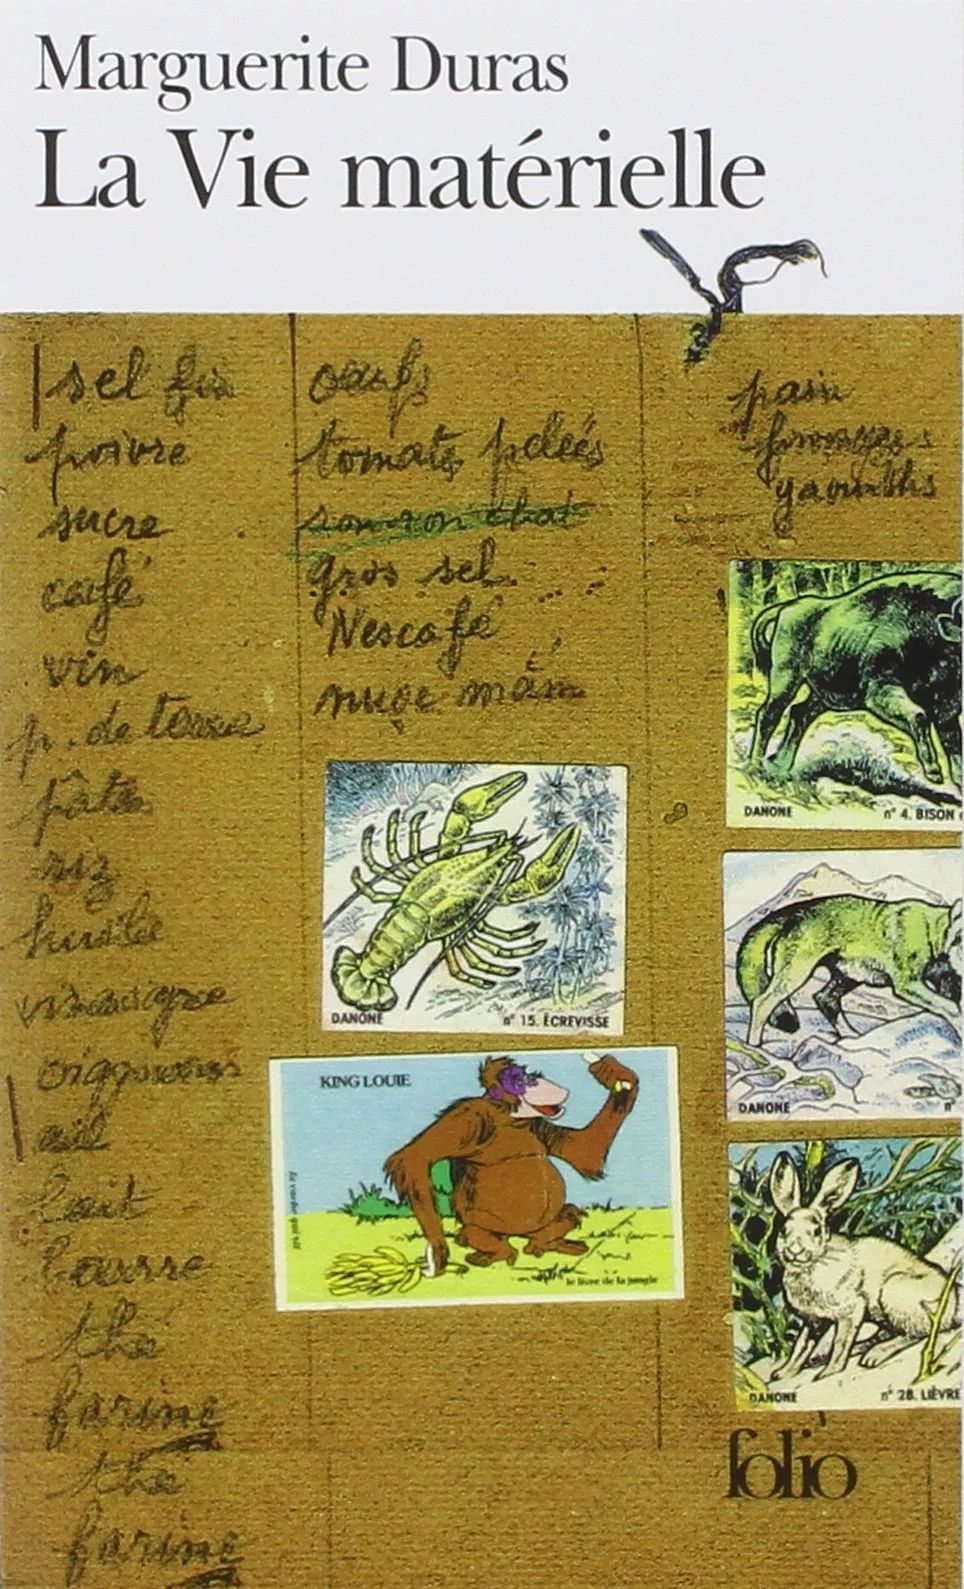 Marguerite Duras
La Vie matérielle
sel fin
poivre
sucre
café
vin
p. de terre
pâtes
riz
huile
vinaigre
oignons
ail
lait
beurre
thé
farine
thé
farine
oeufs
tomates pelées
gros sel
Nescafé
nuoc mâm
pain
fromages
yaourths
DANONE n° 4. BISON
DANONE n° 15. ÉCREVISSE
DANONE n°
KING LOUIE
le livre de la jungle
DANONE n° 28. LIÈVRE
folio